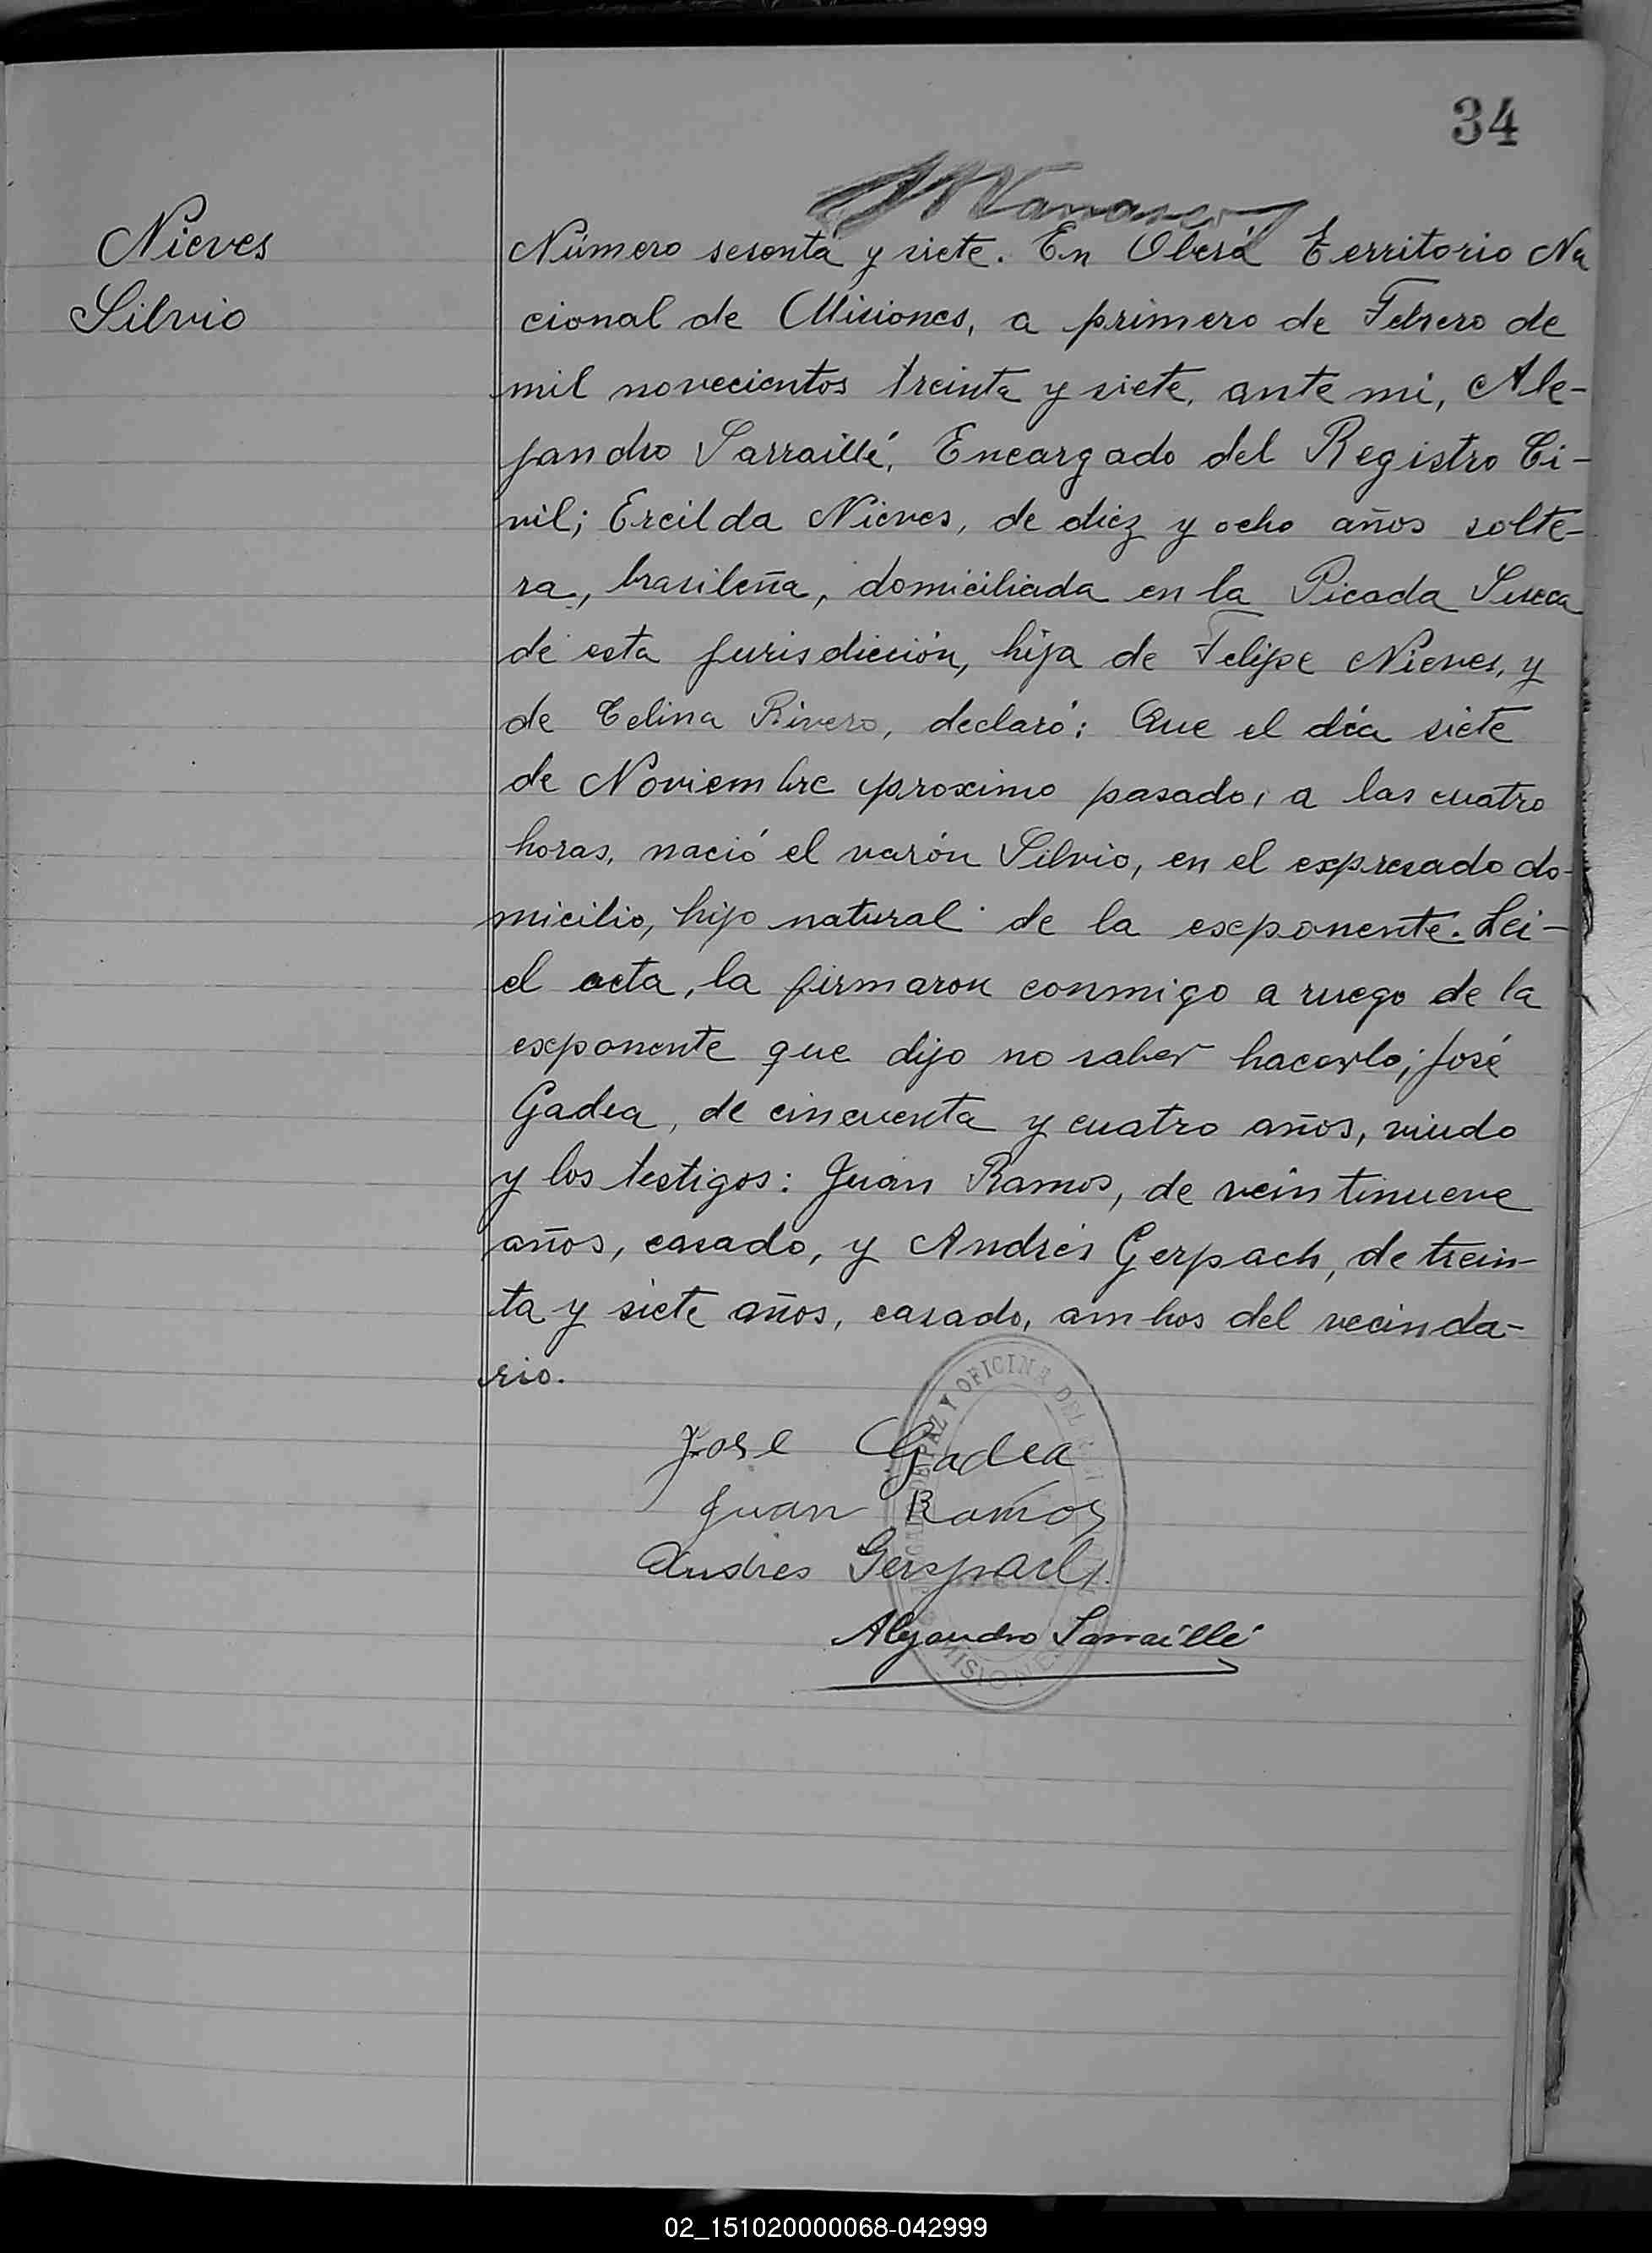 34
Nieves
Silvio
Número sesenta y siete. En Oberá Territorio Na
cional de Misiones, a primero de Febrero de
mil novecientos treinta y siete, ante mi, Ale-
jandro Sarraillé, Encargado del Registro Ci-
vil; Ercilda Nieves, de diez y ocho años solte-
ra, brasileña, domiciliada en la Picada Sueca
de esta jurisdicción, hija de Felipe Nieves, y
de Celina Rivero, declaró: Que el día siete
de Noviembre proximo pasado, a las cuatro
horas, nació el varón Silvio, en el expresado do-
micilio, hijo natural de la exponente. Lei-
el acta, la firmaron conmigo a ruego de la
exponente que dijo no saber hacerlo; José
Gadea, de cincuenta y cuatro años, viudo
y los testigos: Juan Ramos, de veintinueve
años, casado, y Andrés Gerpach, de trein-
ta y siete años, casado, ambos del vecinda-
rio.
Jose Gadea
Juan Ramos
Andres Gerspach
Alejandro Sarraillé
PAZ Y OFICINA DEL
MISIONES
02_151020000068-042999